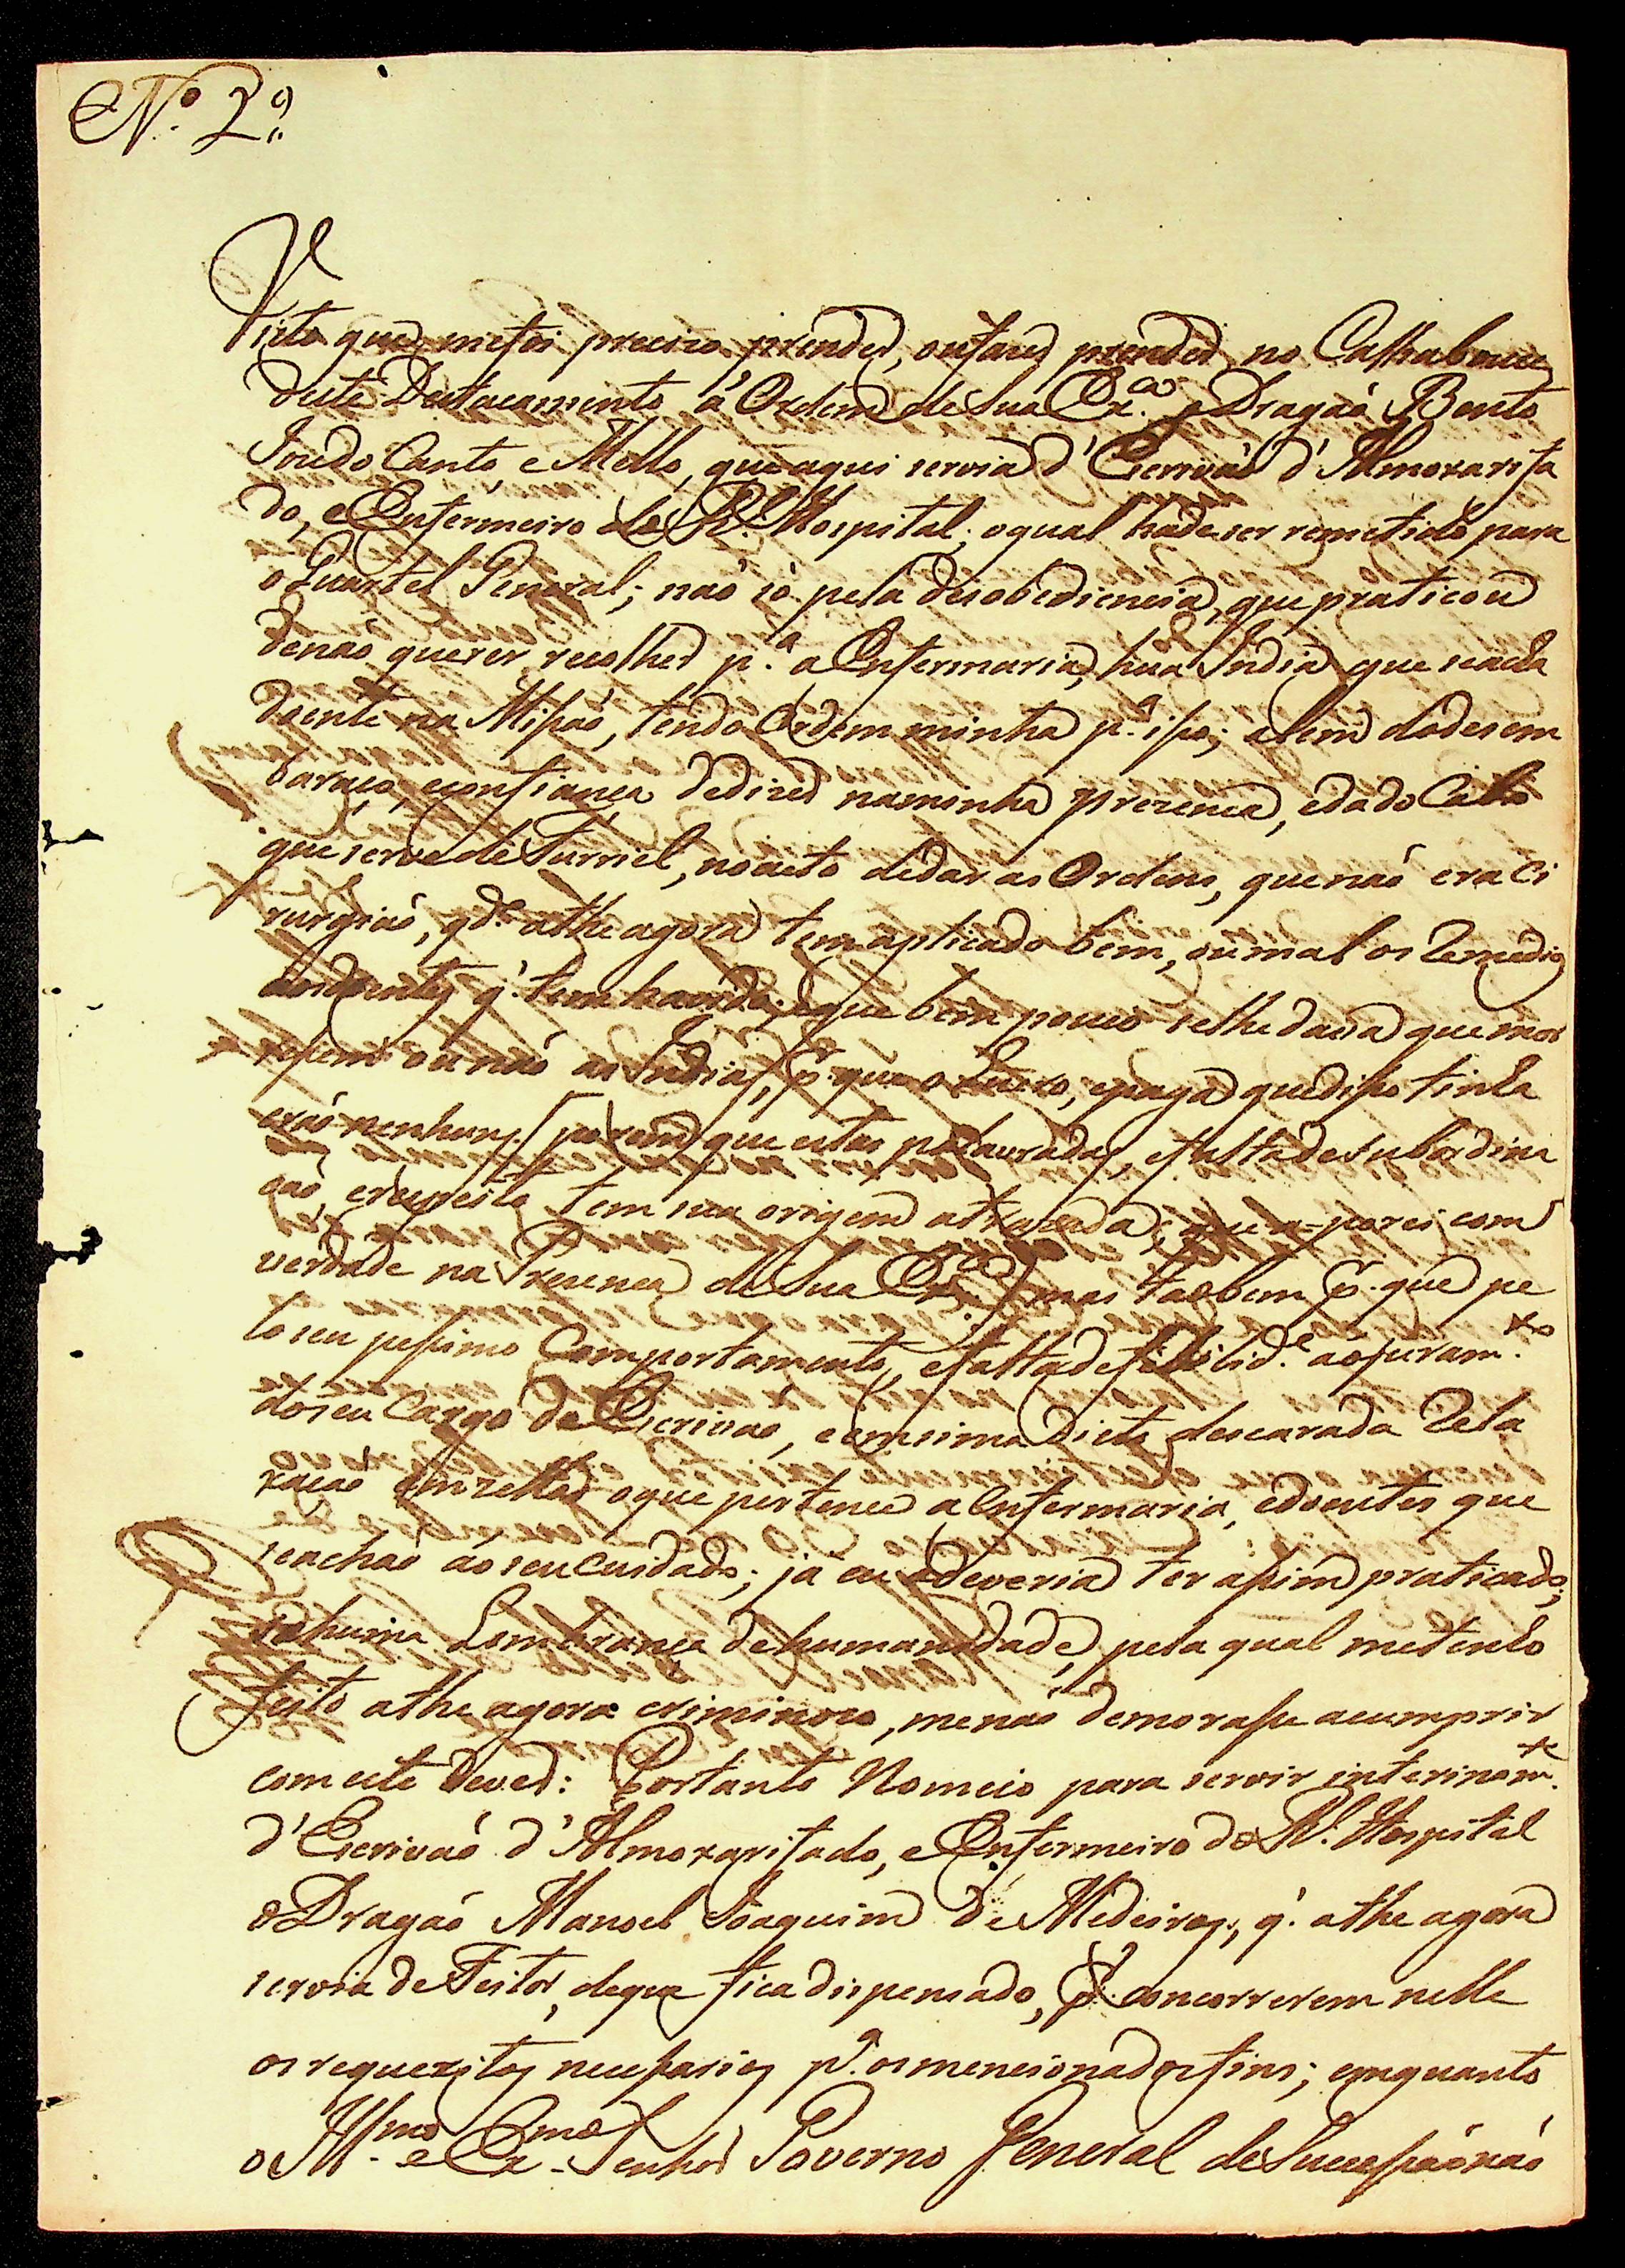 Nº 2º
Visto que me foi precizo prender, ou fazer prender no Calhabouce
deste Destacamento á Ordem de Sua Exª o Dragaõ Bento
Joze do Canto e Mello, que aqui servia d'Escrivaõ d'Almoxarifa
do, e Enfermeiro do Rl. Hospital; o qual hade ser remetido para
o Quartel General; naõ só pela desobediencia, que praticou
de naõ querer recolher p.ª a Enfermaria, hua India que se acha
doente na Missaõ, tendo Ordem minha p.ª isso; alem do desem
baraço, e confiança de dizer na minha prezença, e da do Cabo
que serve de Furriel, no acto de dar as Ordens, que naõ era Ci
rurgiaõ, qdº athe agora tem aplicado bem, ou mal os Remedios
aos doentes q̃. tem havido; e que bem pouco se lhe dava que mor
ressem ou naõ as Indias, p. que o Lucro, e paga que disso tinha
eraõ nenhuns (porem que estas palavradas, e falta de subordina
çaõ, e respeito tem sua origem atrazada; que a porei com
verdade na Prezença de Sua Exª) mas taobem p. que pe
lo seu pessimo Comportamento, e falta de fidilid.e ao juram.to
do seu Cargo de Escrivaõ, e em sima disto descarada Rela
xaçaõ em zellar o que pertence a Enfermaria, e doentes que
se achaõ ao seu cuidado; já eu deveria ter assim praticado;
se huma Lembrança de humanidade, pela qual me tenho
feito athe agora criminozo, me naõ demorasse a cumprir
com este dever: Portanto Nomeio para servir interinam.te
d'Escrivaõ d'Almoxarifado, e Enfermeiro do Rl. Hospital
o Dragaõ Manoel Joaquim de Medeiros, q̃. athe agora
servia de Feitor, de que fica dispensado, p. concorrerem nelle
os requezitos necessarios p.ª os mencionados fins; emquanto
o Illmo e Exmo Senhor Governo General de Sucessaõ naõ